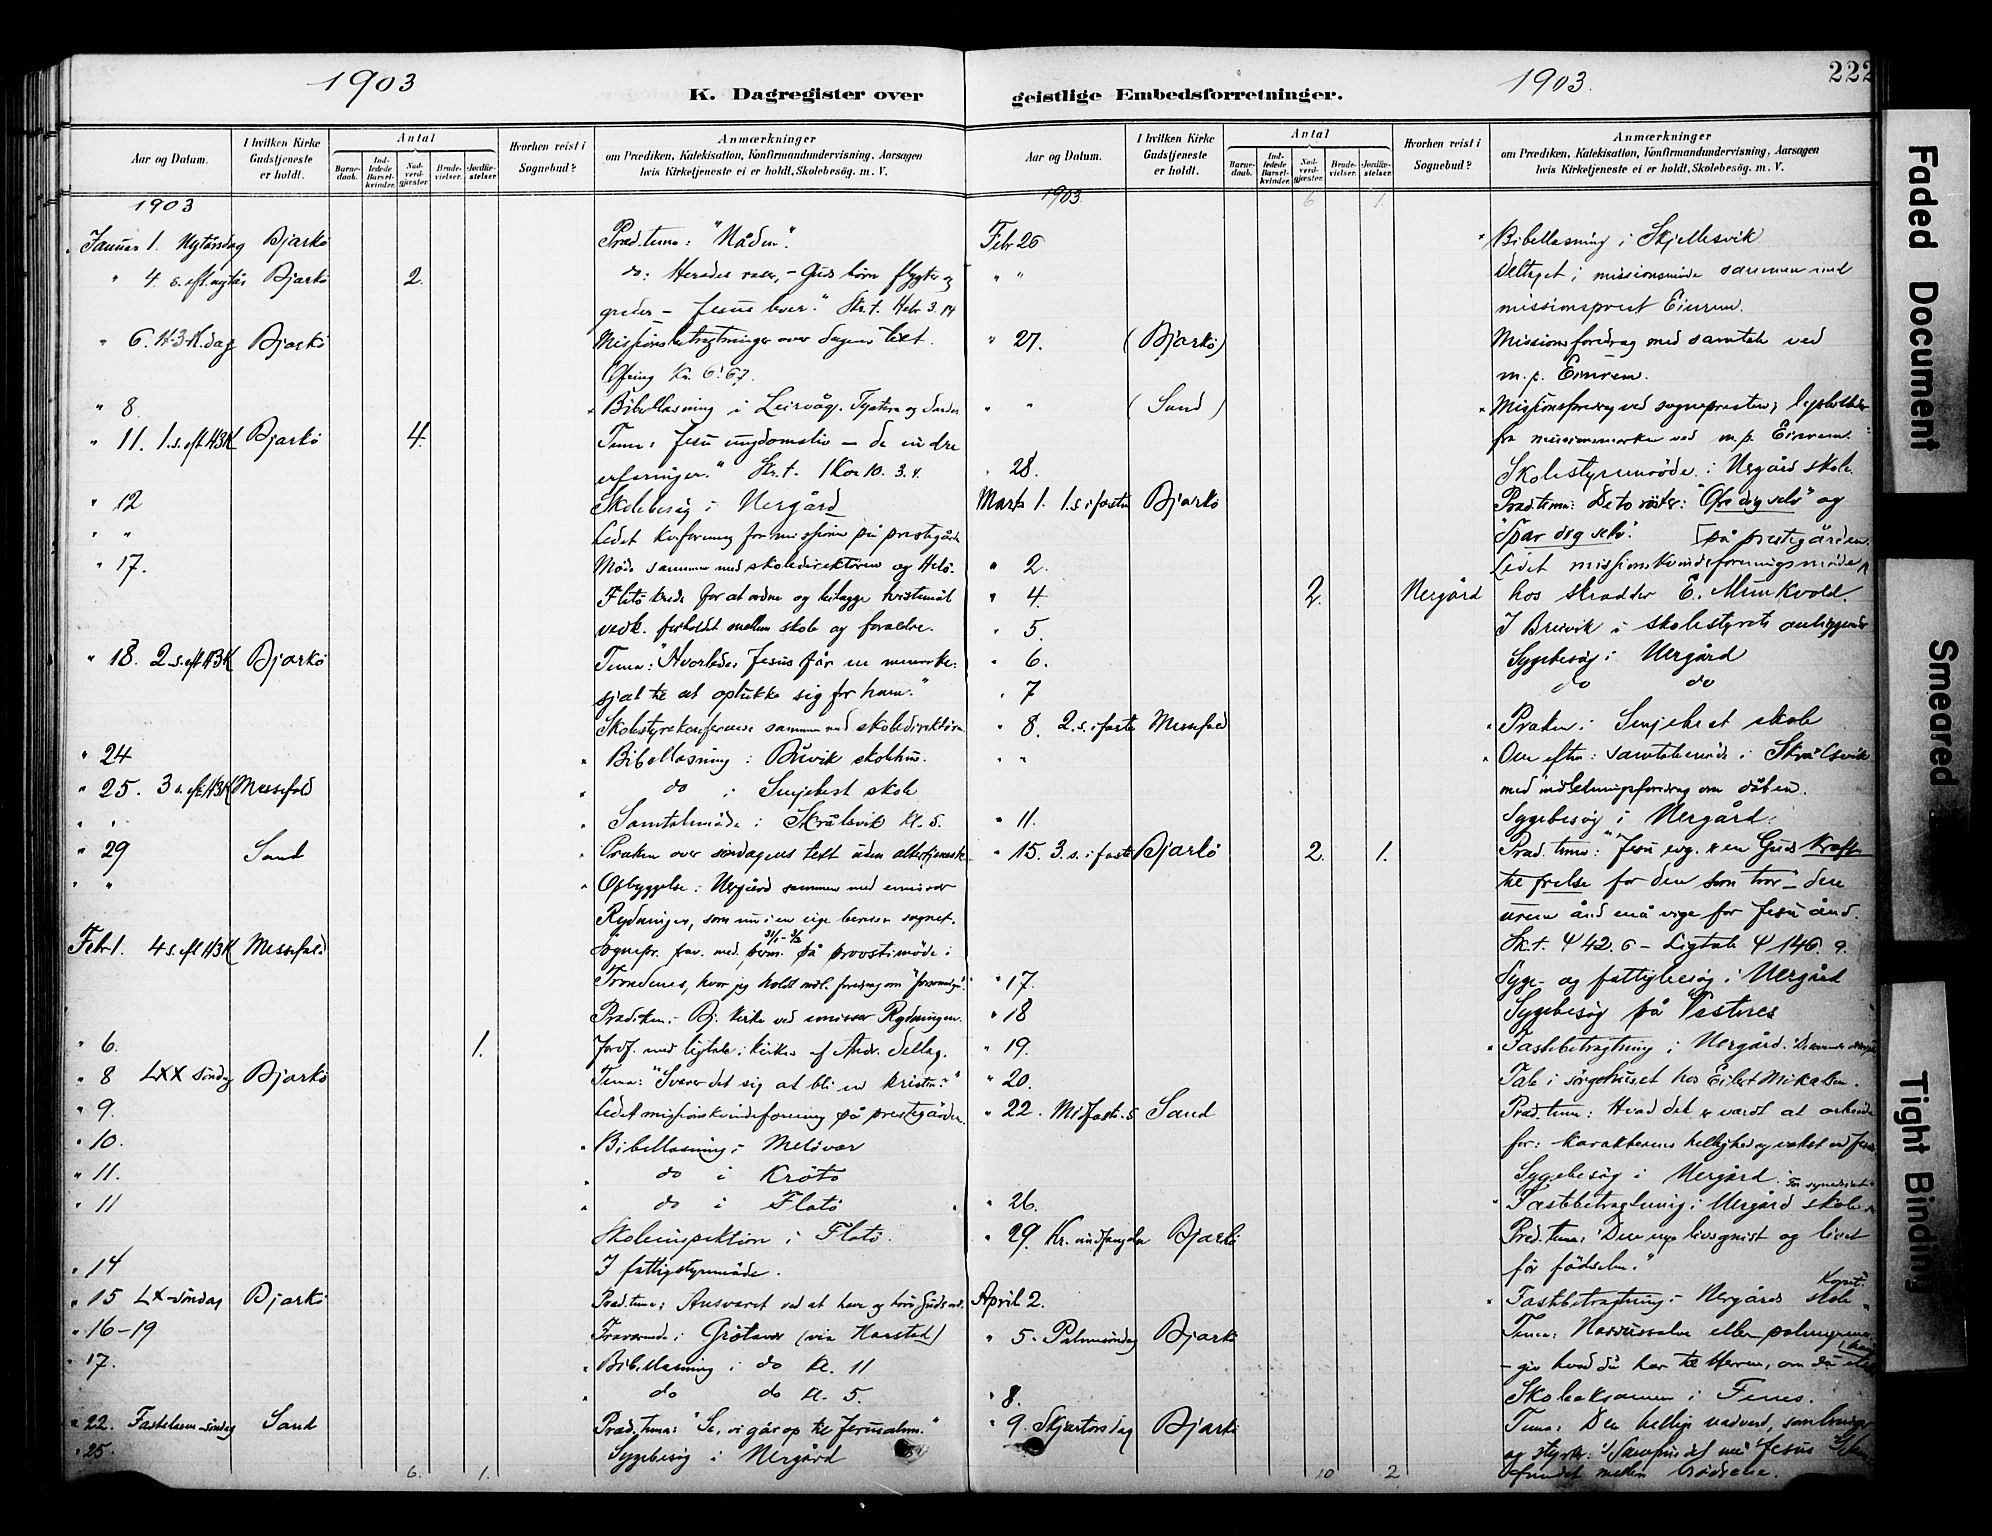 1903
1903.
222
K. Dagregister over
geistlige Embedsforretninger.
Aar og Datum.
I hvilken Kirke Gudstjeneste er holdt.
Antal
Barne-daab.
Ind-ledede Barsel-kvinder.
Nad-verd-gjæster.
Brude-vielser.
Jordfæ-stelser.
Hvorhen reist i Sognebud?
Anmærkninger
om Prædiken, Katekisation, Konfirmandundervisning, Aarsagen
hvis Kirketjeneste ei er holdt, Skolebesøg. m. V.
1903
Januar 1. Nytårsdag Bjarkö Præd.tema: "Nåden".
" 4. s. eft. nytår Bjarkö 2. do: Herodes raser, – Guds børn flygter og
græder – Jesus lever." Skr.t. Hebr 3.14
" 6. H3K.dag Bjarkö Missionsbetragtninger over dagens text.
Ofring Kr. 6.67.
" 8 " Bibellæsning i Leirvåg,
" 11. 1.s.eft H3K Bjarkö 4. Tema: Jesu ungdomsliv – de
erfaringer." Skr.t. 1 Kor 10. 3.4.
" 12 Skolebesøg i Nergård
" " Ledet kv.forening for missionen på prestegården
" 17. Møde sammen med skoledirektøren og
Flatö kreds for at ordne og bilægge tvistemål
vedk. forholdet mellem skole og forældre.
" 18. 2.s.eft H3K Bjarkö Tema: "Hvorledes Jesus får en menneske-
sjæl til at oplukke sig for ham."
Skolestyrekonference sammen med skoledirektøren
" 24 " Bibellæsning i skolehus.
" 25. 3 s. eft H3K Messefold " do i Senjehest skole
" " " Samtalemøde i Skrålsvik kl. 5.
" 29 Sand " Præken over søndagens text uden altertjeneste
" " " Opbyggelse i Nergård sammen med emissær
Rydningen, som nu i en uge bereiser sognet.
Febr 1. 4 s. eft H3K Messefold Sognepr. frav. med. perm. 31/1 – 3/2 på provstimøde i
Trondenes, hvor jeg holdt indl. foredrag om "forsoningen".
Prædiken i Bj. kirke ved emissær Rydningen.
" 6. 1. Jordf. med ligtale i kirken af Andr. Dellag.
" 8 LXX søndag Bjarkö Tema: "Svarer det sig at bli en kristen?"
" 9. Ledet missionskvindeforening på prestegården
" 10. " Bibellæsning i Melövær
" 11. " do i Krötö
" 11 " do i Flatö
Skoleinspektion i Flatö.
" 14 I fattigstyremøde.
" 15 LX-søndag Bjarkö Præd.tema: Ansvaret ved at have og høre Guds ord.
" 16–19 Fraværende i Grötavær (via Harstad)
" 17. " Bibellæsning i do kl. 11
" do do kl. 5.
" 22. Fastelavn-søndag Sand Præd.tema: "Se, vi går op til Jerusalem."
" 25. Sygebesøg i Nergård
6. 1.
Aar og Datum.
I hvilken Kirke Gudstjeneste er holdt.
Antal
Barne-daab.
Ind-ledede Barsel-kvinder.
Nad-verd-gjæster.
Brude-vielser.
Jordfæ-stelser.
Hvorhen reist i Sognebud?
Anmærkninger
om Prædiken, Katekisation, Konfirmandundervisning, Aarsagen
hvis Kirketjeneste ei er holdt, Skolebesøg. m. V.
1903 6 1.
Febr 26 " Bibellæsning i Skjellesvik
" " Deltaget i missionsmøde sammen med
missionsprest Einrem.
" 27. (Bjarkö) Missionsforedrag med samtale ved
m.p. Einrem.
" " (Sand) " Missionsforedrag ved sognepresten; lysbilleder
fra missionsmarken ved m.p. Einrem.
" 28. Skolestyremøde i Nergård skole
Marts 1. 1.s. i fasten Bjarkö Præd.tema: De to røster: "Ofre dig selv" og
"Spar dig selv". [på prestegården.
" 2. Ledet missionskvindeforeningsmøde
" 4. 2. Nergård hos skrædder E. Munkvold.
" 5. I Breivik i skolestyrets anliggender
" 6. Sygebesøg i Nergård
" 7 do do
" 8. 2.s. i faste Messefold " Præken i Senjehest skole
" " " Om efterm. samtalemøde i Skrålsvik
med indledningsforedrag om dåben.
" 11. Sygebesøg i Nergård.
" 15. 3.s. i faste Bjarkö 2. 1. Præd.tema: "Jesu evg. er en Guds kraft
til frelse for den som tror – den
urene ånd må vige for Jesu ånd.
Sk.t. Ψ 42. 6 – Ligtale Ψ 146. 9.
" 17. Syge- og fattigbesøg i Nergård
" 18 Sygebesøg på Vestnes
" 19. " Fastebetragtning i Nergård.
" 20. Tale i sørgehuset hos Eilert Mikalsen.
" 22. Midfaste.s Sand Præd.tema: Hvad det er værdt at arbeide
for: karakterens hellighed og vækst
Sygebesøg i Nergård
" 26. " Fastebetragtning i Nergård skole
" 29. Kr. undfangelse Bjarkö Præd.tema: "Den nye livsgnist og livet
før fødselen."
April 2. " Fastebetragtning i Nergårds skole
" 5. Palmesøndag Bjarkö Tema: Nardussalve eller palmegrene
– giv hvad du har til Herren, om du
" 8. Skoleeksamen i Fenes.
" 9. Skjærtorsdag Bjarkö Tema: Den hellige nadverd,
og styrker: 1/ Samfundet med Jesus
samfundet mellem brødrene.
10 2
Faded Document
Smeared
Tight Binding